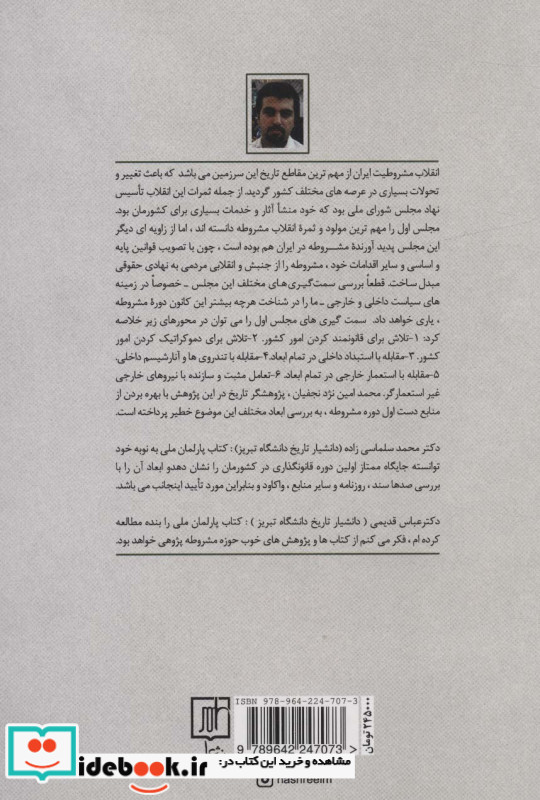 انقلاب مشروطیت ایران از مهم ترین مقاطع تاریخ این سرزمین می باشد که باعث تغییر و
تحولات بسیاری در عرصه های مختلف کشور گردید. از جمله ثمرات این انقلاب تأسیس
نهاد مجلس شورای ملی بود که خود منشأ آثار و خدمات بسیاری برای کشورمان بود.
مجلس اول را مهم ترین مولود و ثمرۀ انقلاب مشروطه دانسته اند ، اما از زاویه ای دیگر
این مجلس پدید آورندۀ مشـــروطه در ایران هم بوده است ، چون با تصویب قوانین پایه
و اساسی و سایر اقدامات خود ، مشروطه را از جنبش و انقلابی مردمی به نهادی حقوقی
مبدل ساخت. قطعاً بررسی سمت‌گیری‌های مختلف این مجلس ـ خصوصاً در زمینه
های سیاست داخلی و خارجی ـ ما را در شناخت هرچه بیشتر این کانون دورۀ مشروطه
، یاری خواهد داد. سمت گیری های مجلس اول را می توان در محورهای زیر خلاصه
کرد: ۱-تلاش برای قانونمند کردن امور کشور. ۲-تلاش برای دموکراتیک کردن امور
کشور. ۳-مقابله با استبداد داخلی در تمام ابعاد.۴-مقابله با تندروی ها و آنارشیسم داخلی.
۵-مقابله با استعمار خارجی در تمام ابعاد. ۶-تعامل مثبت و سازنده با نیروهای خارجی
غیر استعمارگر. محمد امین نژد نجفیان ، پژوهشگر تاریخ در این پژوهش با بهره بردن از
منابع دست اول دوره مشروطه ، به بررسی ابعاد مختلف این موضوع خطیر پرداخته است.
دکتر محمد سلماسی زاده (دانشیار تاریخ دانشگاه تبریز) : کتاب پارلمان ملی به نوبه خود
توانسته جایگاه ممتاز اولین دوره قانونگذاری در کشورمان را نشان دهدو ابعاد آن را با
بررسی صدها سند ، روزنامه و سایر منابع ، واکاود و بنابراین مورد تأیید اینجانب می باشد.
دکترعباس قدیمی ( دانشیار تاریخ دانشگاه تبریز ) : کتاب پارلمان ملی را بنده مطالعه
کرده ام ، فکر می کنم از کتاب ها و پژوهش های خوب حوزه مشروطه پژوهی خواهد بود.
ISBN 978-964-224-707-3
9 789642 247073 >
۲۴۵۰۰۰ تومان
علم
مشاهده و خرید این کتاب در:
idebook.ir
nashreelm